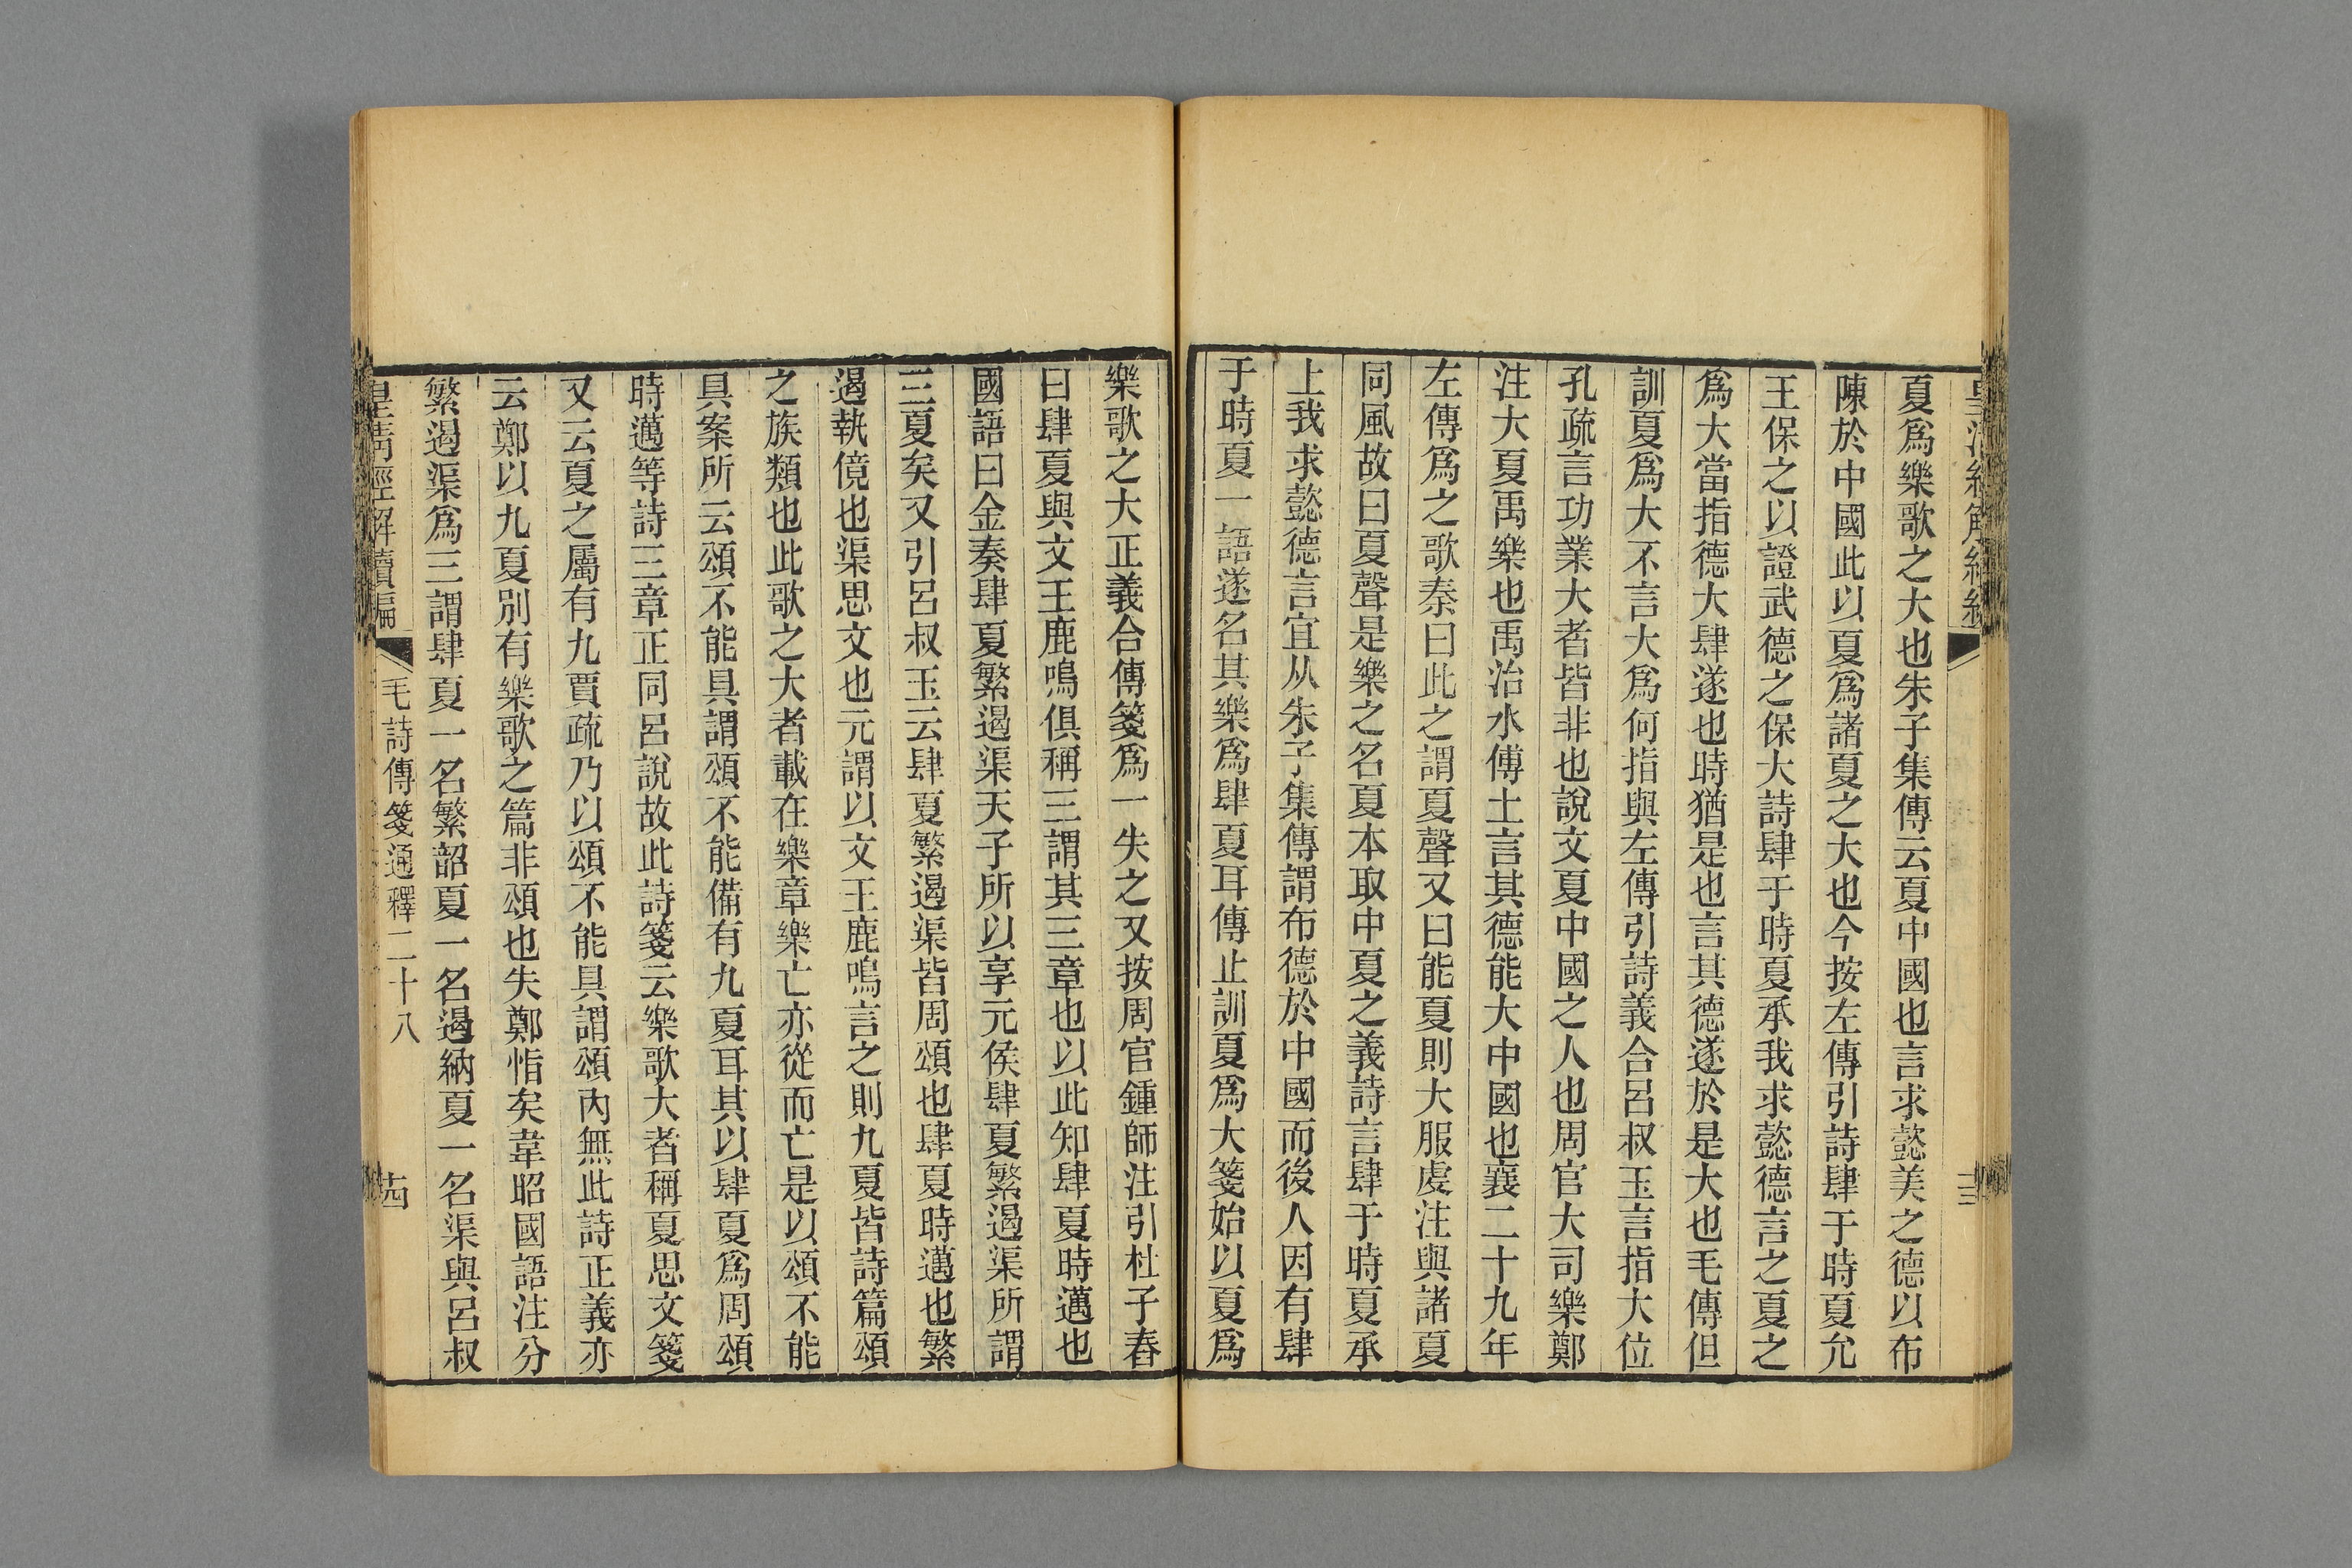 夏爲樂歌之大也朱子集傳云夏中國也言求懿美之德以布
陳於中國此以夏爲諸夏之大也今按左傳引詩肆于時夏允
王保之以證武德之保大詩肆于時夏承我求懿德言之夏之
爲大當指德大肆遂也時猶是也言其德遂於是大也毛傳但
訓夏爲大不言大爲何指與左傳引詩義合呂叔玉言指大位
孔疏言功業大者皆非也說文夏中國之人也周官大司樂鄭
注大夏禹樂也禹治水傅土言其德能大中國也襄二十九年
左傳爲之歌秦曰此之謂夏聲又曰能夏則大服虔注與諸夏
同風故曰夏聲是樂之名夏本取中夏之義詩言肆于時夏承
上我求懿德言宜从朱子集傳謂布德於中國而後人因有肆
于時夏一語遂名其樂爲肆夏耳傳止訓夏爲大箋始以夏爲
樂歌之大正義合傳箋爲一失之又按周官鍾師注引杜子春
曰肆夏與文王鹿鳴俱稱三謂其三章也以此知肆夏時邁也
國語曰金奏肆夏繁遏渠天子所以享元侯肆夏繁遏渠所謂
三夏矣又引呂叔玉云肆夏繁遏渠皆周頌也肆夏時邁也繁
遏執傹也渠思文也元謂以文王鹿鳴言之則九夏皆詩篇頌
之族類也此歌之大者載在樂章樂亡亦從而亡是以頌不能
具案所云頌不能具謂頌不能備有九夏耳其以肆夏爲周頌
時邁等詩三章正同呂說故此詩箋云樂歌大者稱夏思文箋
又云夏之屬有九賈疏乃以頌不能具謂頌內無此詩正義亦
云鄭以九夏別有樂歌之篇非頌也失鄭恉矣韋昭國語注分
繁遏渠爲三謂肆夏一名繁韶夏一名遏納夏一名渠與呂叔
皇淸經解續編
毛詩傳箋通釋二十八
十四